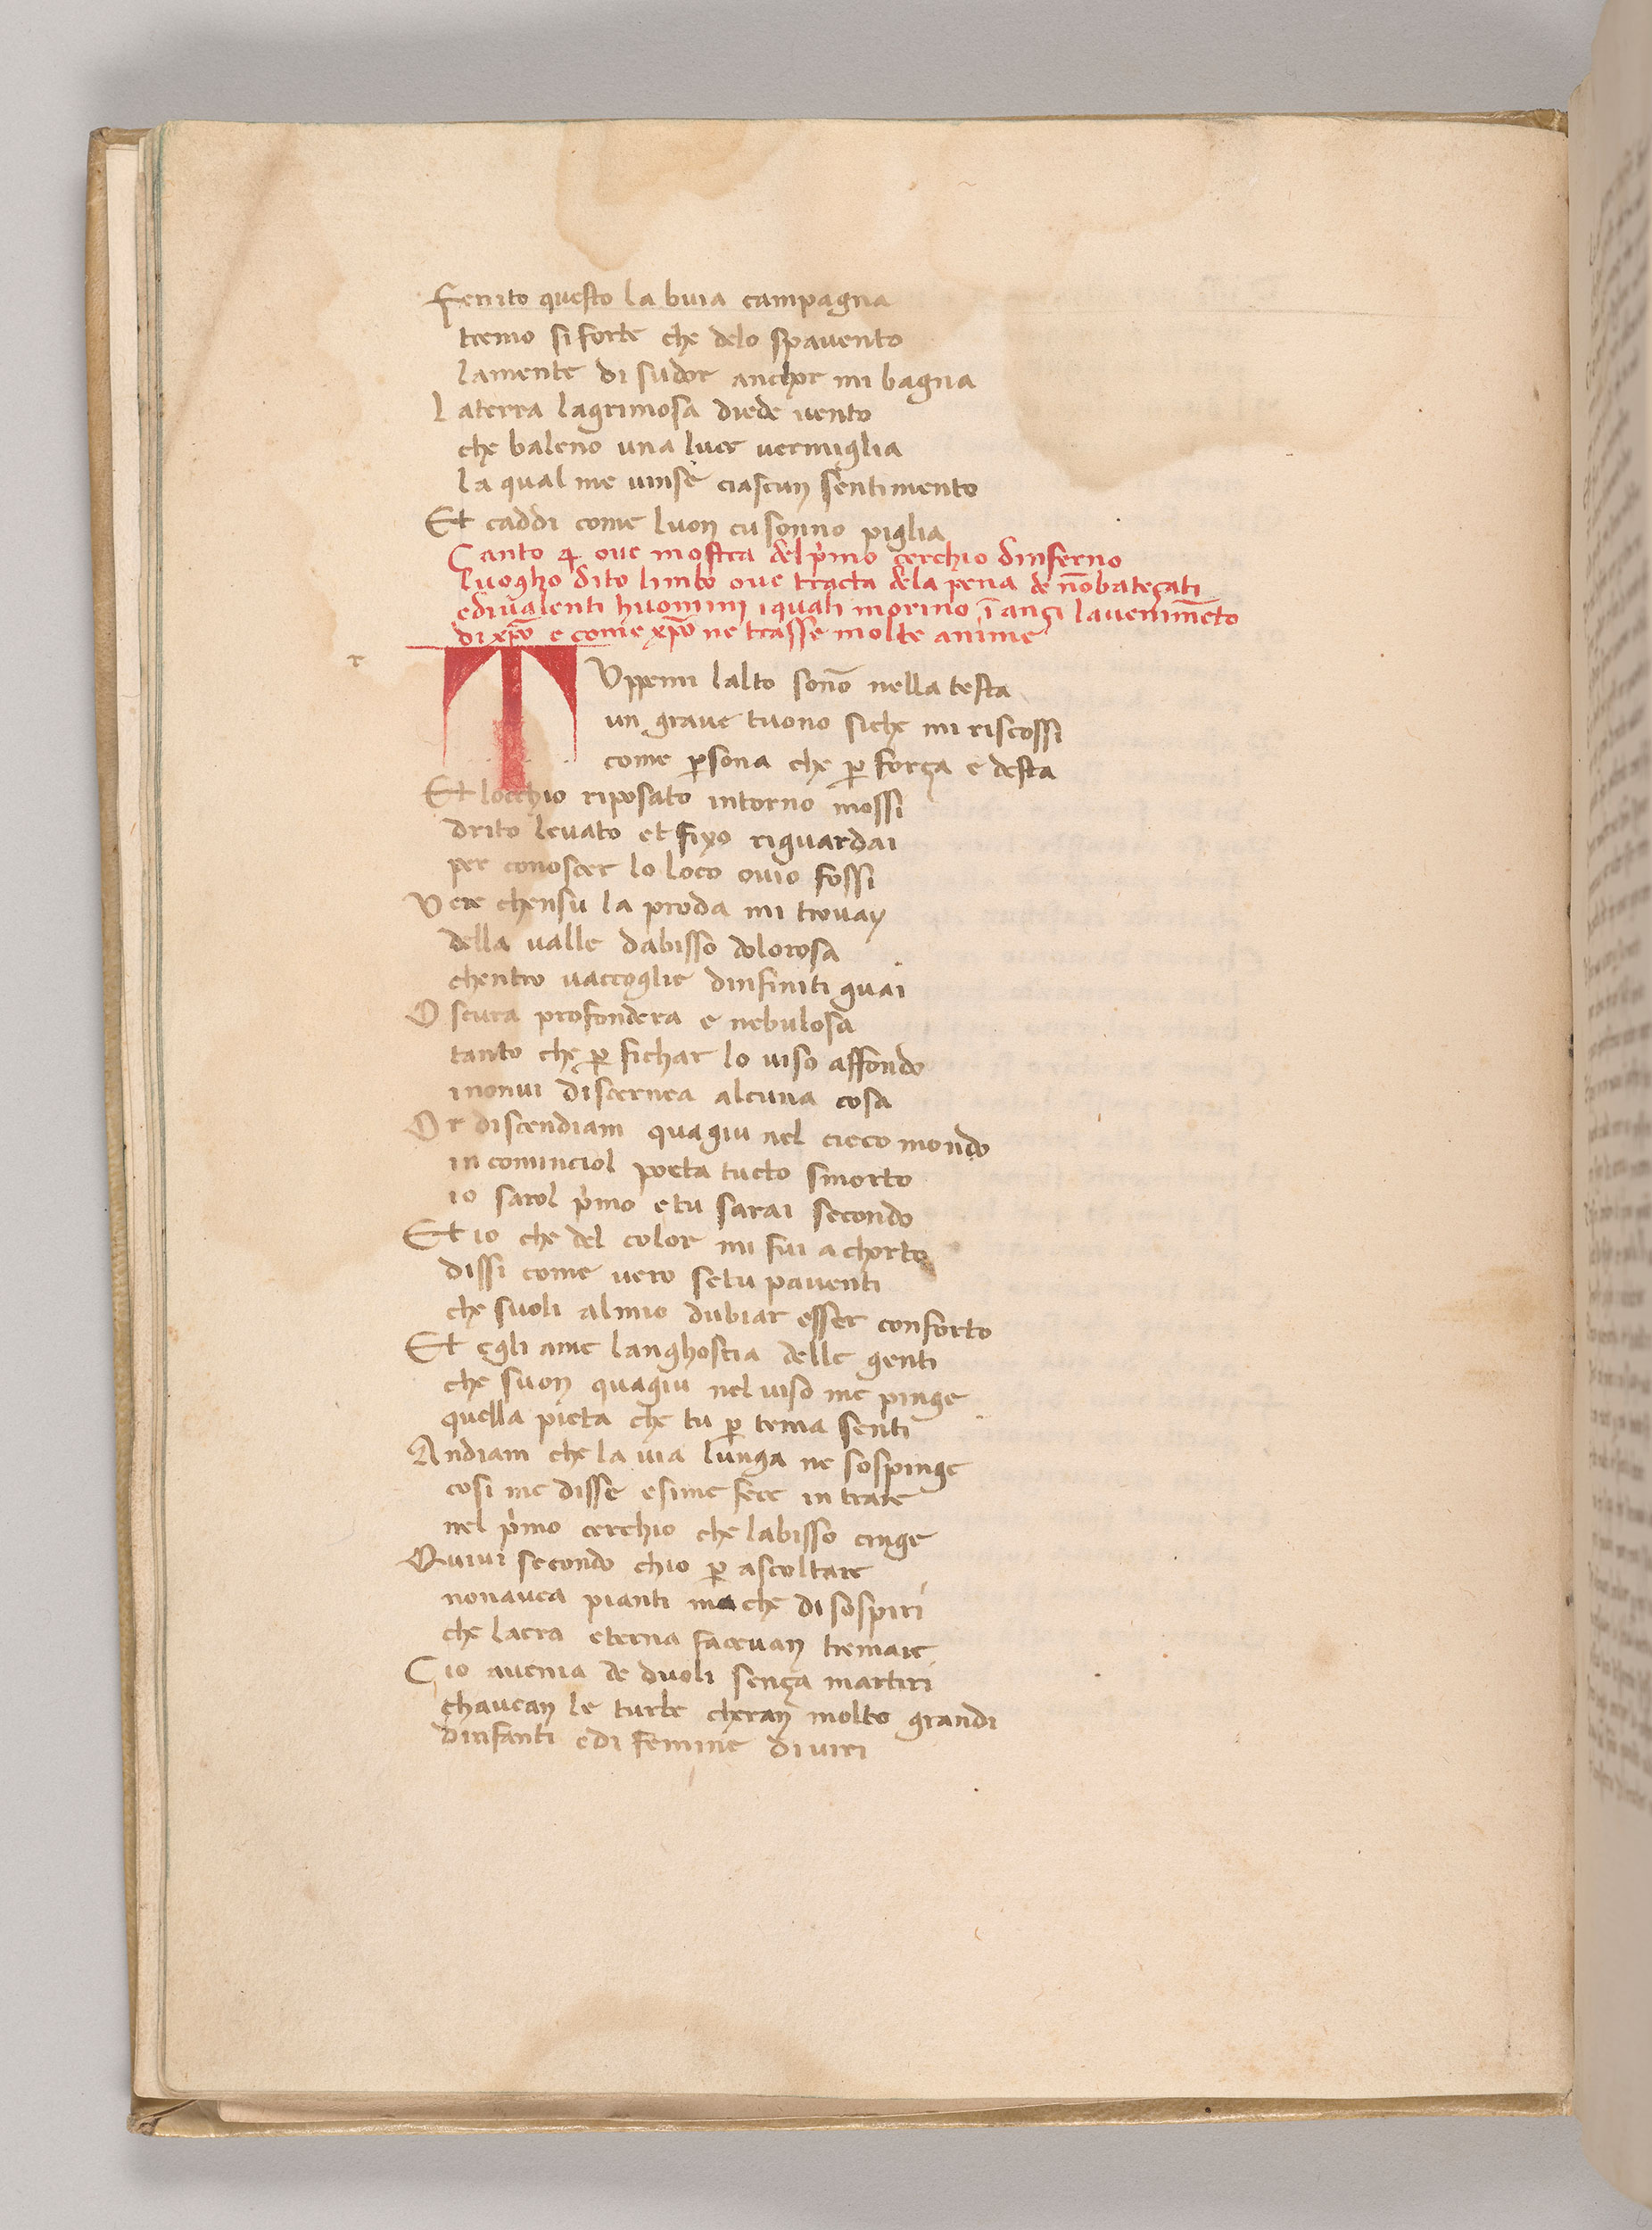 Fenito questo la buia campagna
tremo si forte che delo spavento
lamente di sudor anchor mi bagna
L aterra lagrimosa diede vento
che baleno una luce vermiglia
la qual me vinse ciascun sentimento
Et caddi come luon cu sonno piglia
Canto 4 ove mostra del p̓mo cerchio dinferno
luogho dito limbo ove tracta dela pena de nōbateçati
edivalenti huomini iquali morino ī ançi lavenimēto
di xp̄o e come xp̄o ne trasse molte anime
r
T Vppemi lalto sono nella testa
un grave tuono siche mi riscossi
come p̱sona che p̱ força e desta
Et locchio riposato intorno mossi
drito levato et fixo riguardai
per conoscer lo loco ovio fossi
Vere chensu la proda mi trovay
della valle dabisso dolorosa
chentro vaccoglie dinfiniti guai
O scura profondera e nebulosa
tanto che p̱ fichar lo viso affondo
inonvi discernea alcuna cosa
Or discendiam quagiu nel cieco mondo
in cominciol poeta tucto smorto
io sarol p̓mo etu sarai secondo
Et io che del color mi fui a chorto
dissi come vero setu paventi
che suoli almio dubiar esser conforto
Et egli ame langhoscia delle genti
che suon quagiu nel viso me pinge
quella pieta che tu p̱ tema senti
Andiam che la via lunga ne sospinge
cosi me disse esime fece in trare
nel p̓mo cerchio che labisso cinge
Quivi secondo chio p̱ ascoltare
nonavea pianti mache di sospiri
che laera eterna facevan tremare
Cio avenia de duoli sença martiri
chavean le turbe cheran molto grandi
dinfanti edi femine diviri